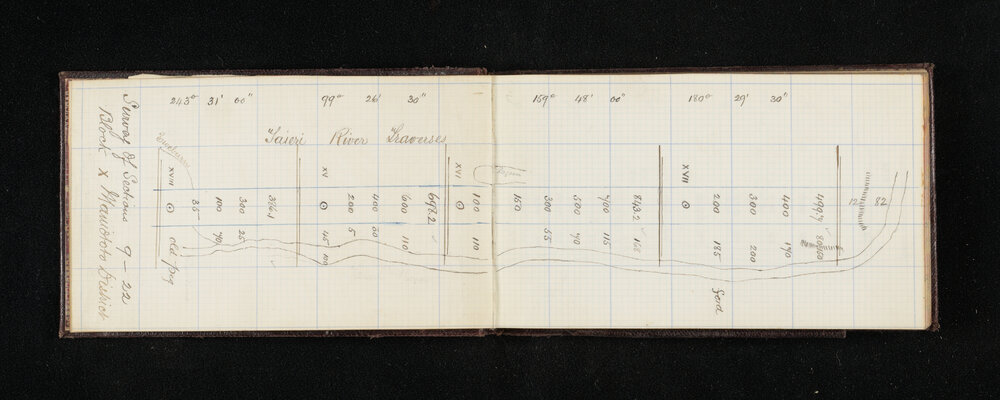 Survey of Sections 9 – 22
Block X Maniototo District
243° 31' 00"
99° 26' 30"
159° 48' 00"
180° 29' 30"
Taieri River Traverses
XVIII
35
100
300
386.1
70
25
old peg
XV
200
400
600
698.2
45
5
30
110
100
XVI
100
110
150
300
500
700
843.2
55
70
115
168
XVII
200
300
400
499.7
185
200
170
ford
82